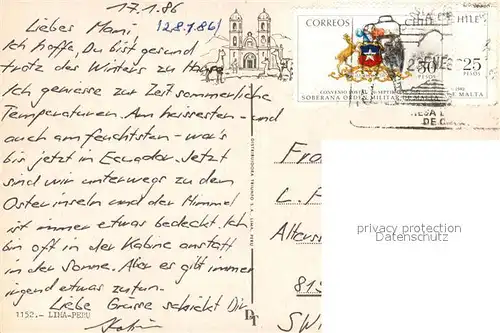 17.1.86
(28.1.86)
Liebes Mami,
Ich hoffe, Du bist gesund
trotz des Winters zu Hause
Ich geniesse zur Zeit sommerliche
Temperaturen. Am heissesten - und
auch am feuchtsten - war's
bis jetzt in Ecuador. Jetzt
sind wir unterwegs zu den
Osterinseln und der Himmel
ist immer etwas bedeckt. Ich
bin oft in der Kabine anstatt
in der Sonne. Aber es gibt immer
irgend etwas zu tun.
Liebe Grüsse schickt Dir
1152.- LIMA-PERU
CORREOS
CHILE
CHILE
50
PESOS
25
PESOS
SOBERANA ORDEN MILITAR DE MALTA
privacy protection
Datenschutz